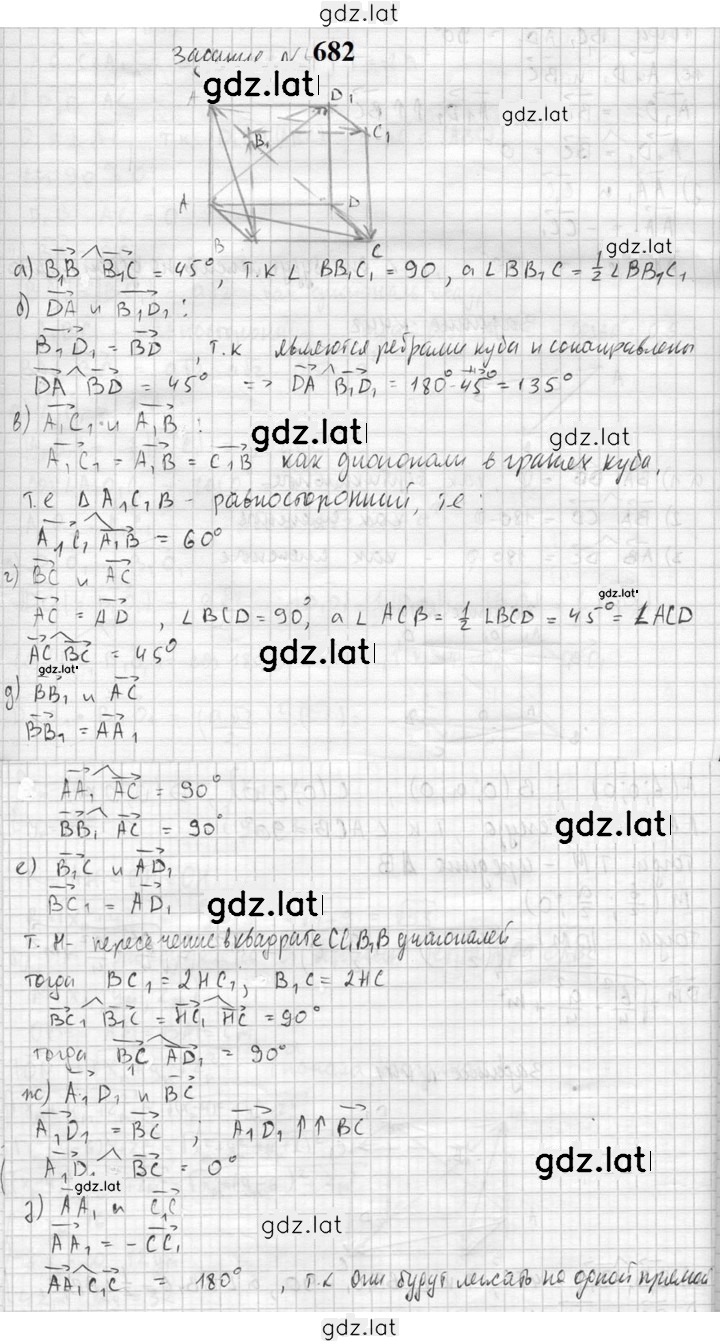 gdz.lat
Задание № 682
gdz.lat
D₁
gdz.lat
C₁
B₁
A
D
B
C
gdz.lat
а) B₁B ^ B₁C = 45°, т.к ∠ BB₁C₁ = 90, а ∠ BB₁C = 1/2 ∠BB₁C₁
б) DA и B₁D₁:
B₁D₁ = BD, т.к являются ребрами куба и сонаправлены
DA ^ BD = 45° => DA ^ B₁D₁ = 180° - 45° = 135°
в) A₁C₁ и A₁B:
gdz.lat
gdz.lat
A₁C₁ = A₁B = C₁B как диагонали в гранях куба,
т.е Δ A₁C₁B - равносторонний, т.е:
A₁C₁ ^ A₁B = 60°
г) BC и AC
gdz.lat
AC = AD, ∠BCD = 90°, а ∠ ACB = 1/2 ∠BCD = 45° = ∠ACD
AC ^ BC = 45°
gdz.lat
gdz.lat
д) BB₁ и AC
BB₁ = AA₁
AA₁ ^ AC = 90°
BB₁ ^ AC = 90°
gdz.lat
е) B₁C и AD₁
BC₁ = AD₁
gdz.lat
т. H - пересечение в квадрате CC₁B₁B диагоналей
тогда BC₁ = 2HC₁; B₁C = 2HC
BC₁ ^ B₁C = HC₁ ^ HC = 90°
тогда B₁C ^ AD₁ = 90°
ж) A₁D₁ и BC
A₁D₁ = BC ; A₁D₁ ↑↑ BC
A₁D₁ ^ BC = 0°
gdz.lat
gdz.lat
з) AA₁ и C₁C
gdz.lat
AA₁ = - CC₁
AA₁ ^ C₁C = 180°, т.к они будут лежать на одной прямой
gdz.lat